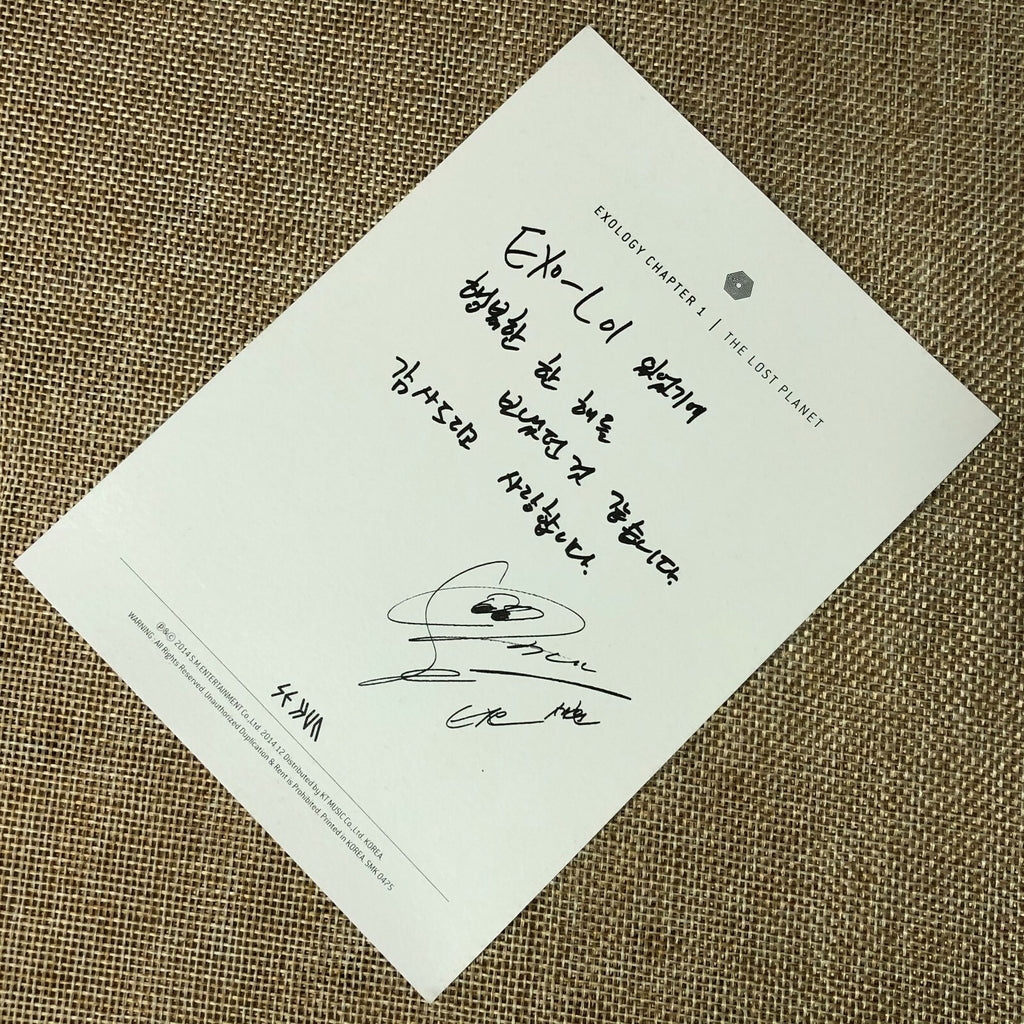 EXOLOGY CHAPTER 1 | THE LOST PLANET
EXO-L이 있었기에
행복한 한 해를
보냈던 것 같습니다.
감사드리고 사랑합니다.
EXO 시우민
℗&© 2014 S.M.ENTERTAINMENT Co.,Ltd. 2014.12 Distributed by KT MUSIC Co.,Ltd. KOREA.
WARNING : All Rights Reserved. Unauthorized Duplication & Rent is Prohibited. Printed in KOREA. SMK 0475